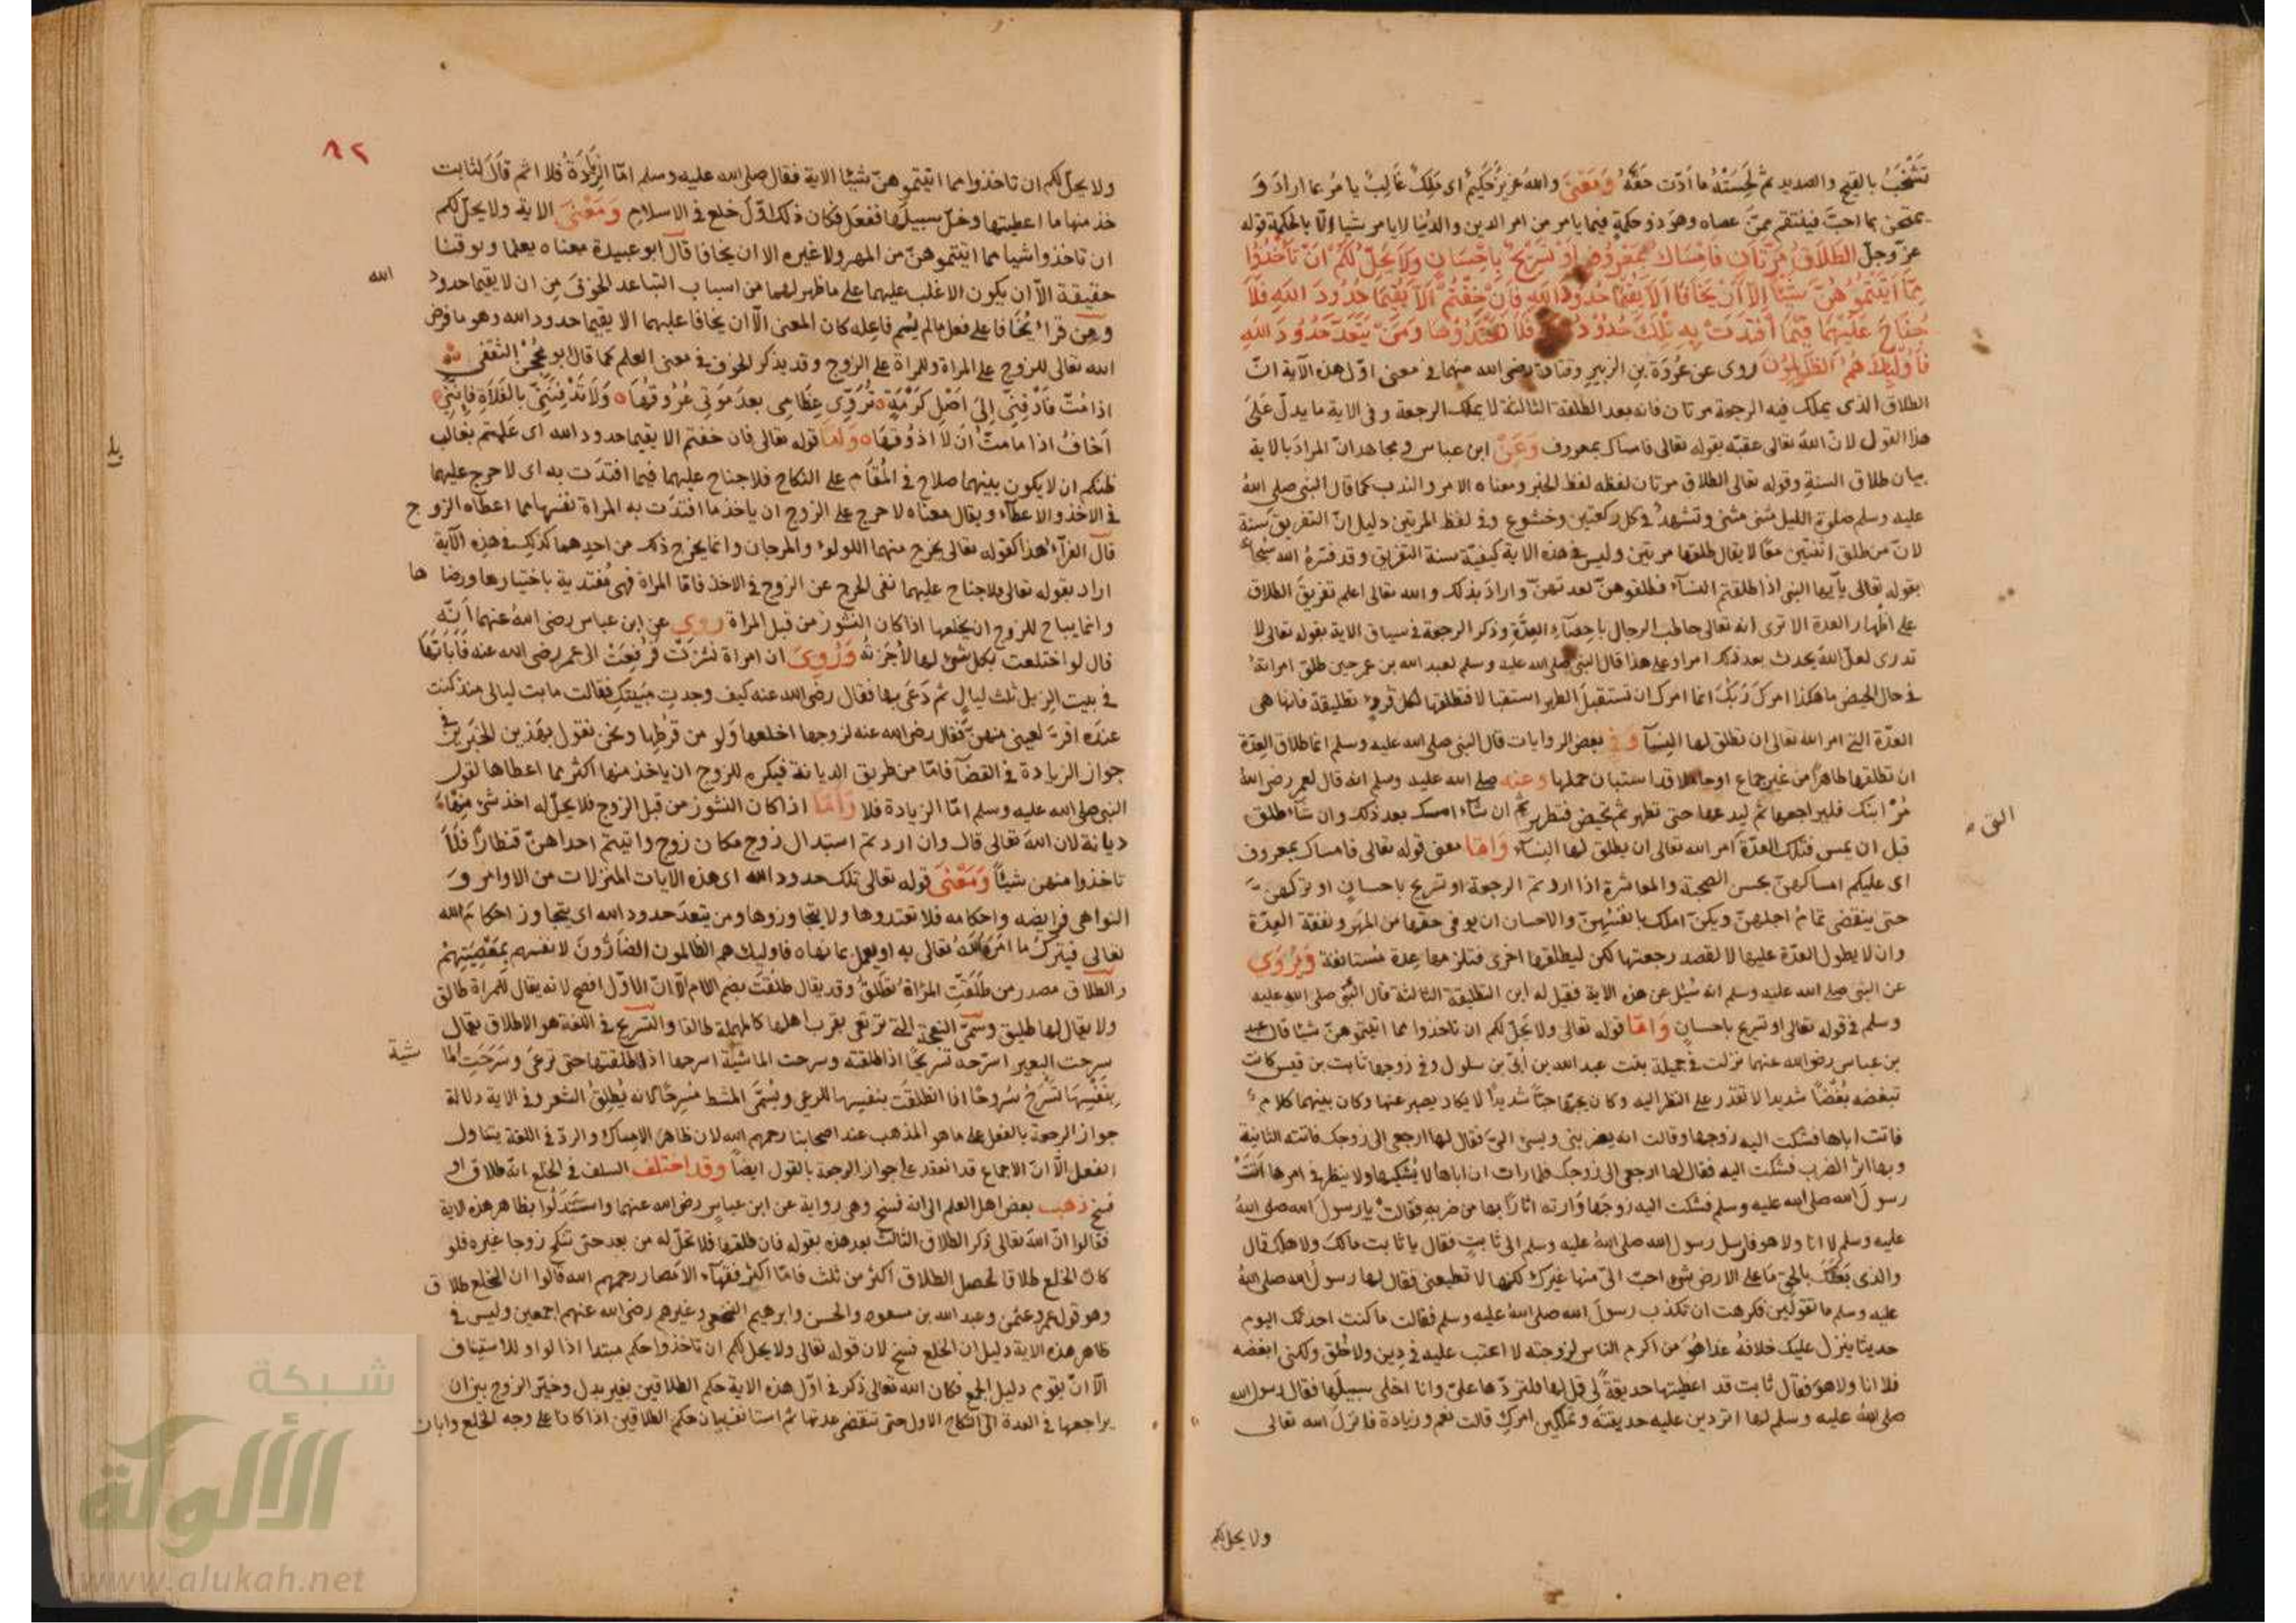 تَشْخَبُ بالقيح والصديد ثم لَحِسَتْهُ ما أدّت حَقَّهُ وَمَعْنَى والله عَزيزٌ حَكيمٌ اى مَلِكٌ غَالِبٌ يا مُر بما ارادَ وَ
يمتحن بما احبّ فينتقم ممّن عصاه وهو ذو حكمةٍ فيما يامر من امر الدين والدُنيا لا يامر شيا الّا بالحكمة قوله
عزّ وجلّ الطَّلَاقُ مَرَّتَانِ فَاِمْسَاكٌ بِمَعْرُوفٍ اَوْ تَسْرِيحٌ بِاِحْسَانٍ وَلَا يَحِلُّ لَكُمْ اَنْ تَأْخُذُوا
مِمَّا اٰتَيْتُمُوهُنَّ شَيْئًا اِلَّا اَنْ يَخَافَا اَلَّا يُقِيمَا حُدُودَ اللهِ فَاِنْ خِفْتُمْ اَلَّا يُقِيمَا حُدُودَ اللهِ فَلَا
جُنَاحَ عَلَيْهِمَا فِيمَا افْتَدَتْ بِهِ تِلْكَ حُدُودُ فَلَا تَعْتَدُوهَا وَمَنْ يَتَعَدَّ حُدُودَ اللهِ
فَاُولٰئِكَ هُمُ الظَّالِمُونَ روى عن عُروَة بنِ الزبيرِ وقتادة رضى الله عنهما فى معنى اوّل هذه الآية انّ
الطلاق الذى يملك فيه الرجعة مرتان فانه بعد الطلقة الثالثة لا يملك الرجعة وفى الاية ما يدلّ عَلىَ
هذا القول لانّ اللهَ تعالى عقبّه بقوله تعالى فامساك بمعروف وَعَنْ ابن عباس ومجاهد انّ المرادَ بالاية
بيان طلاق السنةِ وقوله تعالى الطلاق مرتان لفظه لفظ الخبر ومعناه الامر والندب كما قال النبى صلى اللهُ
عليه وسلم صلوة الليل مثنى مثنى وتشهدٌ فى كل ركعتين وخشوع وفى لفظ المرتين دليل انّ التفريق سنة
لانّ من طلق اثنتين معًا لا يقال طلقها مرتين وليس فى هذه الاية كيفيّة سنة التفريق وقد فسّرهُ الله سبحا
بقوله تعالى يا أيها النبى اذا طلقتم النسآء فطلقوهنّ لعدتهنّ وارادَ بذلك والله تعالى اعلم تفريقَ الطلاق
على اظهار العدة الا ترى انه تعالى خاطب الرجال باحصآءِ العِدَّةِ وذكر الرجعة فى سياق الاية بقوله تعالى لا
تدرى لعلّ اللهُ يحدث بعد ذلك امرا وعلى هذا قال النبى صلى الله عليه وسلم لعبد الله بن عمر حين طلق امراتهُ
فى حال الحيض ما هكذا امركَ رَبُّكَ انما امرك ان تستقبلَ الطهر استقبالا فتطلقها لكل قُرءٍ تطليقة فانها هى
العدّة التى امر الله تعالى ان تطلق لها النسآء وَفى بعض الروايات قال النبى صلى الله عليه وسلم انما طلاق العِدّة
ان تطلقها طاهرًا من غير جماع او حاملا قد استبان حملها وعنه صلى الله عليه وسلم انه قال لعمر رضى اللهُ
مُرْ ابنك فليراجعها ثم ليدعها حتى تطهر ثم تحيض فتطهر ثم ان شآء امسك بعد ذلك وان شآء طلق
قبل ان يمس فتلك العدّة امر الله تعالى ان يطلق لها النسآء وَامّا معنى قوله تعالى فامساك بمعروف
اى عليكم امساكهنّ بحسن الصحبة والمعاشرة اذا اردتم الرجعة او تسريح باحسانٍ او تركهنّ
حتى ينقضى تمامُ اجلهنّ ويكنّ املك بانفسُهِنّ والاحسان ان يوفى حقها من المهر ونفقة العِدّة
وان لا يطول العدّة عليها لا لقصد رجعتها لكن ليطلقها اخرى فتلزمها عِدة مُستانفة وَيُرْوَى
عن النبى صلى الله عليه وسلم انه سُئِل عن هذه الاية فقيل له اين التطليقة الثالثة قال النبّى صلى الله عليه
وسلم فى قوله تعالى او تسريح باحسانٍ وَامّا قوله تعالى ولا يحلّ لكم ان تاخذوا مما اتيتموهنّ شيئا قال عبد
بن عباس رضى الله عنهما نزلت فى جميلة بنت عبد الله بن أبىّ بن سلول وفى زوجها ثابت بن قيس كانت
تبغضه بُغْضًا شديدا لا تقدّر على النظر اليه وكان يحبها حبّاً شديدًا لا يكاد يصبر عنها وكان بينهما كلام
فاتت اباها فشكت اليه زوجها وقالت انه يضربنى ويسئ الىّ فقال لها ارجعى الى زوجك فاتته الثانية
وبها اثر الضرب فشكت اليه فقال لها ارجعى الى زوجك فلما رات ان اباها لا يُشكِيها ولا ينظر فى امرها اَتَتْ
رسولَ الله صلى الله عليه وسلم فشكت اليه زوجَها وَارته اثارًا بها من ضربهِ فقالتْ يا رسول الله صلى اللهُ
عليه وسلم لا انا ولا هو فارسل رسول الله صلى اللهُ عليه وسلم الى ثابتٍ فقال يا ثابت مالك ولاهلك قال
والذى بَعَثَكَ بالحقّ مَا على الارض شئ احبّ الىّ منها غيرك لكنها لا تطيعنى فقال لها رسول الله صلى اللهُ
عليه وسلم ما تقولين فكرهت ان تكذب رسولَ الله صلى اللهُ عليه وسلم فقالت ما كنت احدثك اليوم
حديثا ينزل عليك خلافهُ غدا هُوَ من اكرم الناس لزوجته لا اعتب عليه فى دِين ولا خُلق ولكنى ابغضه
فلا انا ولا هوَ فقال ثابت قد اعطيتها حديقةً لى قل لها فلترّدها علىّ وانا اخلى سبيلَها فقال رسول الله
صلى اللهُ عليه وسلم لها اتردين عليه حديقته وتملكين امركِ قالت نعم وزيادة فانزلَ الله تعالى
ولا يحل لكم
الق
٨٢
ولا يحلّ لكم ان تاخذوا مما اتيتموهنّ شيئا الاية فقال صلى الله عليه وسلم امّا الزيَادَةُ فلا اثم قاَلَ لثابت
خذ منها ما اعطيتها وخلّ سبيلَها ففعَل فكان ذلك اوّلَ خلع فى الاسلام وَمَعْنَى الاية ولا يحلّ لكم
ان تاخذوا شيا مما اتيتموهنّ من المهر ولا غيره الا ان يخافا قال ابو عبيدة معناه يعلما ويوقنا
حقيقة الّا ان يكون الاغلب عليهما على ما ظهر لهما من اسباب التباعد الخوفَ مِن ان لا يقيما حدود الله
ومن قراء يُخَافا على فعل مالم يُسم فاعِله كان المعنى الّا ان يخافا عليهما الا يقيما حدود الله وهو ما فرض
الله تعالى للزوج على المراة وللمراة على الزوج وقد يذكر الخوف فى معنى العلم كما قال ابو مِحْجَنْ الثقفى
اذا مُتُّ فَادْفِنّى اِلىَ اَصْلِ كَرْمَةٍ تُرَوِّى عِظَامِى بعدَ مَوْتى عُرُوقُهَا وَلَا تَدْفِنَنِّى بالفَلاةِ فإننى
اَخافُ اذا ما متُّ اَنْ لَا اذُوقَهَا وَامّا قوله تعالى فان خفتم الا يقيما حدود الله اى عَلِمتم بغالب
ظنكم ان لا يكون بينهما صلاح فى المُقَام على النكاح فلا جناح عليهما فيما افتدَت به اى لا حرج عليهما
فى الاخذ والاعطآء ويقال معناه لا حرج على الزوج ان ياخذ ما افتدَت به المراة نفسَها مما اعطاه الزوج
قال الفرّآء هذا كقوله تعالى يخرج منهما اللولوء والمرجان وانما يخرج ذلك من احدهما كذلك فى هذه الآية
اراد بقوله تعالى فلا جناح عليهما نفى الحرج عن الزوج فى الاخذ فامّا المراة فهى مُفتدية باختيارها ورضاها
وانما يباح للزوج ان يخلعها اذا كان النشوز من قبل المراة روى عن ابن عباس رضى اللهُ عنهما اَنّه
قال لو اختلعت بكل شئ لها لاُجَزتهُ وَرُوِىَ ان امراة نشزَت فرُفِعَتْ الى عمر رضى الله عنه فَاَبَاتَهَا
فى بيت الزبل ثلث ليالٍ ثم دَعَى بها فقال رضى الله عنه كيف وجدتِ مَبيتكِ فقالت ما بت ليالى منذ كنت
عندَه اقرّ لعينى منهنّ فقال رضى الله عنه لزوجها اخلعها وَلو من قرطِها ونحن نقول بهَذين الخبَرين فى
جواز الزيادة فى القضآء فامّا من طريق الديانة فيكره للزوج ان ياخذ منها اكثر مما اعطاها لقول
النبى صلى الله عليه وسلم امّا الزيادة فلا وَاَمّا اذا كان النشوز من قبل الزوج فلا يحلّ له اخذ شئ مِنْهَا
ديانة لان اللهَ تعالى قال وان اردتم استبدال زوج مكان زوج واتيتم احداهنّ قنطاراً فَلَا
تاخذوا منهن شيئاً وَمَعْنَى قوله تعالى تلك حدود الله اى هذه الايات المنزلات من الاوامر وَ
النواهى فرايضه واحكامه فلا تعتدوها ولا يتجاوزوها ومن يتعدّ حدود الله اى يتجاوز احكامَ الله
تعالى فيتركُ ما امَرَ اللهُ تعالى به او يعمل بما نهاه فاوليك هم الظالمون الضَارّونَ لانفسهم بِمَعْصِيَتِهِمْ
والطلاق مصدر من طَلَقَتْ المرْاةُ تطلُقُ وقد يقال طلُقَت بضم اللام الّا انّ الاوّل افصح لانه يقال للمراة طالق
ولا يقال لها طليق وسُمّى النعجة التى ترتعى بقرب اهلها كالمهملة طالقا والتسريح فى اللغة هو الاطلاق يقال
سرحت البعير اسرّحه تسريحًا اذا طلقته وسرحت الماشيَة اسرحها اذا اطلقتها حتى ترعىَ وسَرَحَتِ الما شية
بِنَفْسِهَا تَسْرَحُ سُروحًا اذا انطلقَت بنفسِها للرعى ويُسَمّى المشط مُسِرحًا لانه يُطلِقُ الشعر وفى الاية دلالة
جواز الرجعة بالفعل على ما هو المذهب عند اصحابنا رحمهم الله لان ظاهرَ الامساك والردّ فى اللغة يتناول
الفعل الّا انّ الاجماع قد انعقد على جواز الرجعة بالقول ايضاً وقد اختلف السلف فى الخلع انّه طلاق او
فسخ ذهب بعض اهل العلم الى انه فسخ وهى رواية عن ابن عباسٍ رضى الله عنهما واسْتَدَلُوا بظاهر هذه الاية
فقالوا انّ اللهَ تعالى ذكر الطلاق الثالث بعد هذه بقوله فان طلقها فلا تحلّ له من بعد حتى تنكح زوجا غيره فلو
كان الخلع طلاقا لحصل الطلاق اكثر من ثلث فامّا اكثر فقهآء الامصار رحمهم الله قالوا ان الخلع طلاق
وهو قول عمر وعثمن وعبد الله بن مسعود والحسن وابرهيم النخعى وغيرهم رضى الله عنهم اجمعين وليس فى
ظاهر هذه الاية دليل ان الخلع فسخ لان قوله تعالى ولا يحل لكم ان تاخذوا حكم مبتدا اذا لواو للاستيناف
الّا انّ يقوم دليل الجمع فكان الله تعالى ذكر فى اوّل هذه الاية حكم الطلاقين بغير بدل وخيّر الزوج بين ان
يراجعها فى العدة الى النكاح الاول حتى تنقضى عدتها ثم استانف بيان حكم الطلاقين اذا كانا على وجه الخلع وابان
شبكة
الألوكة
www.alukah.net